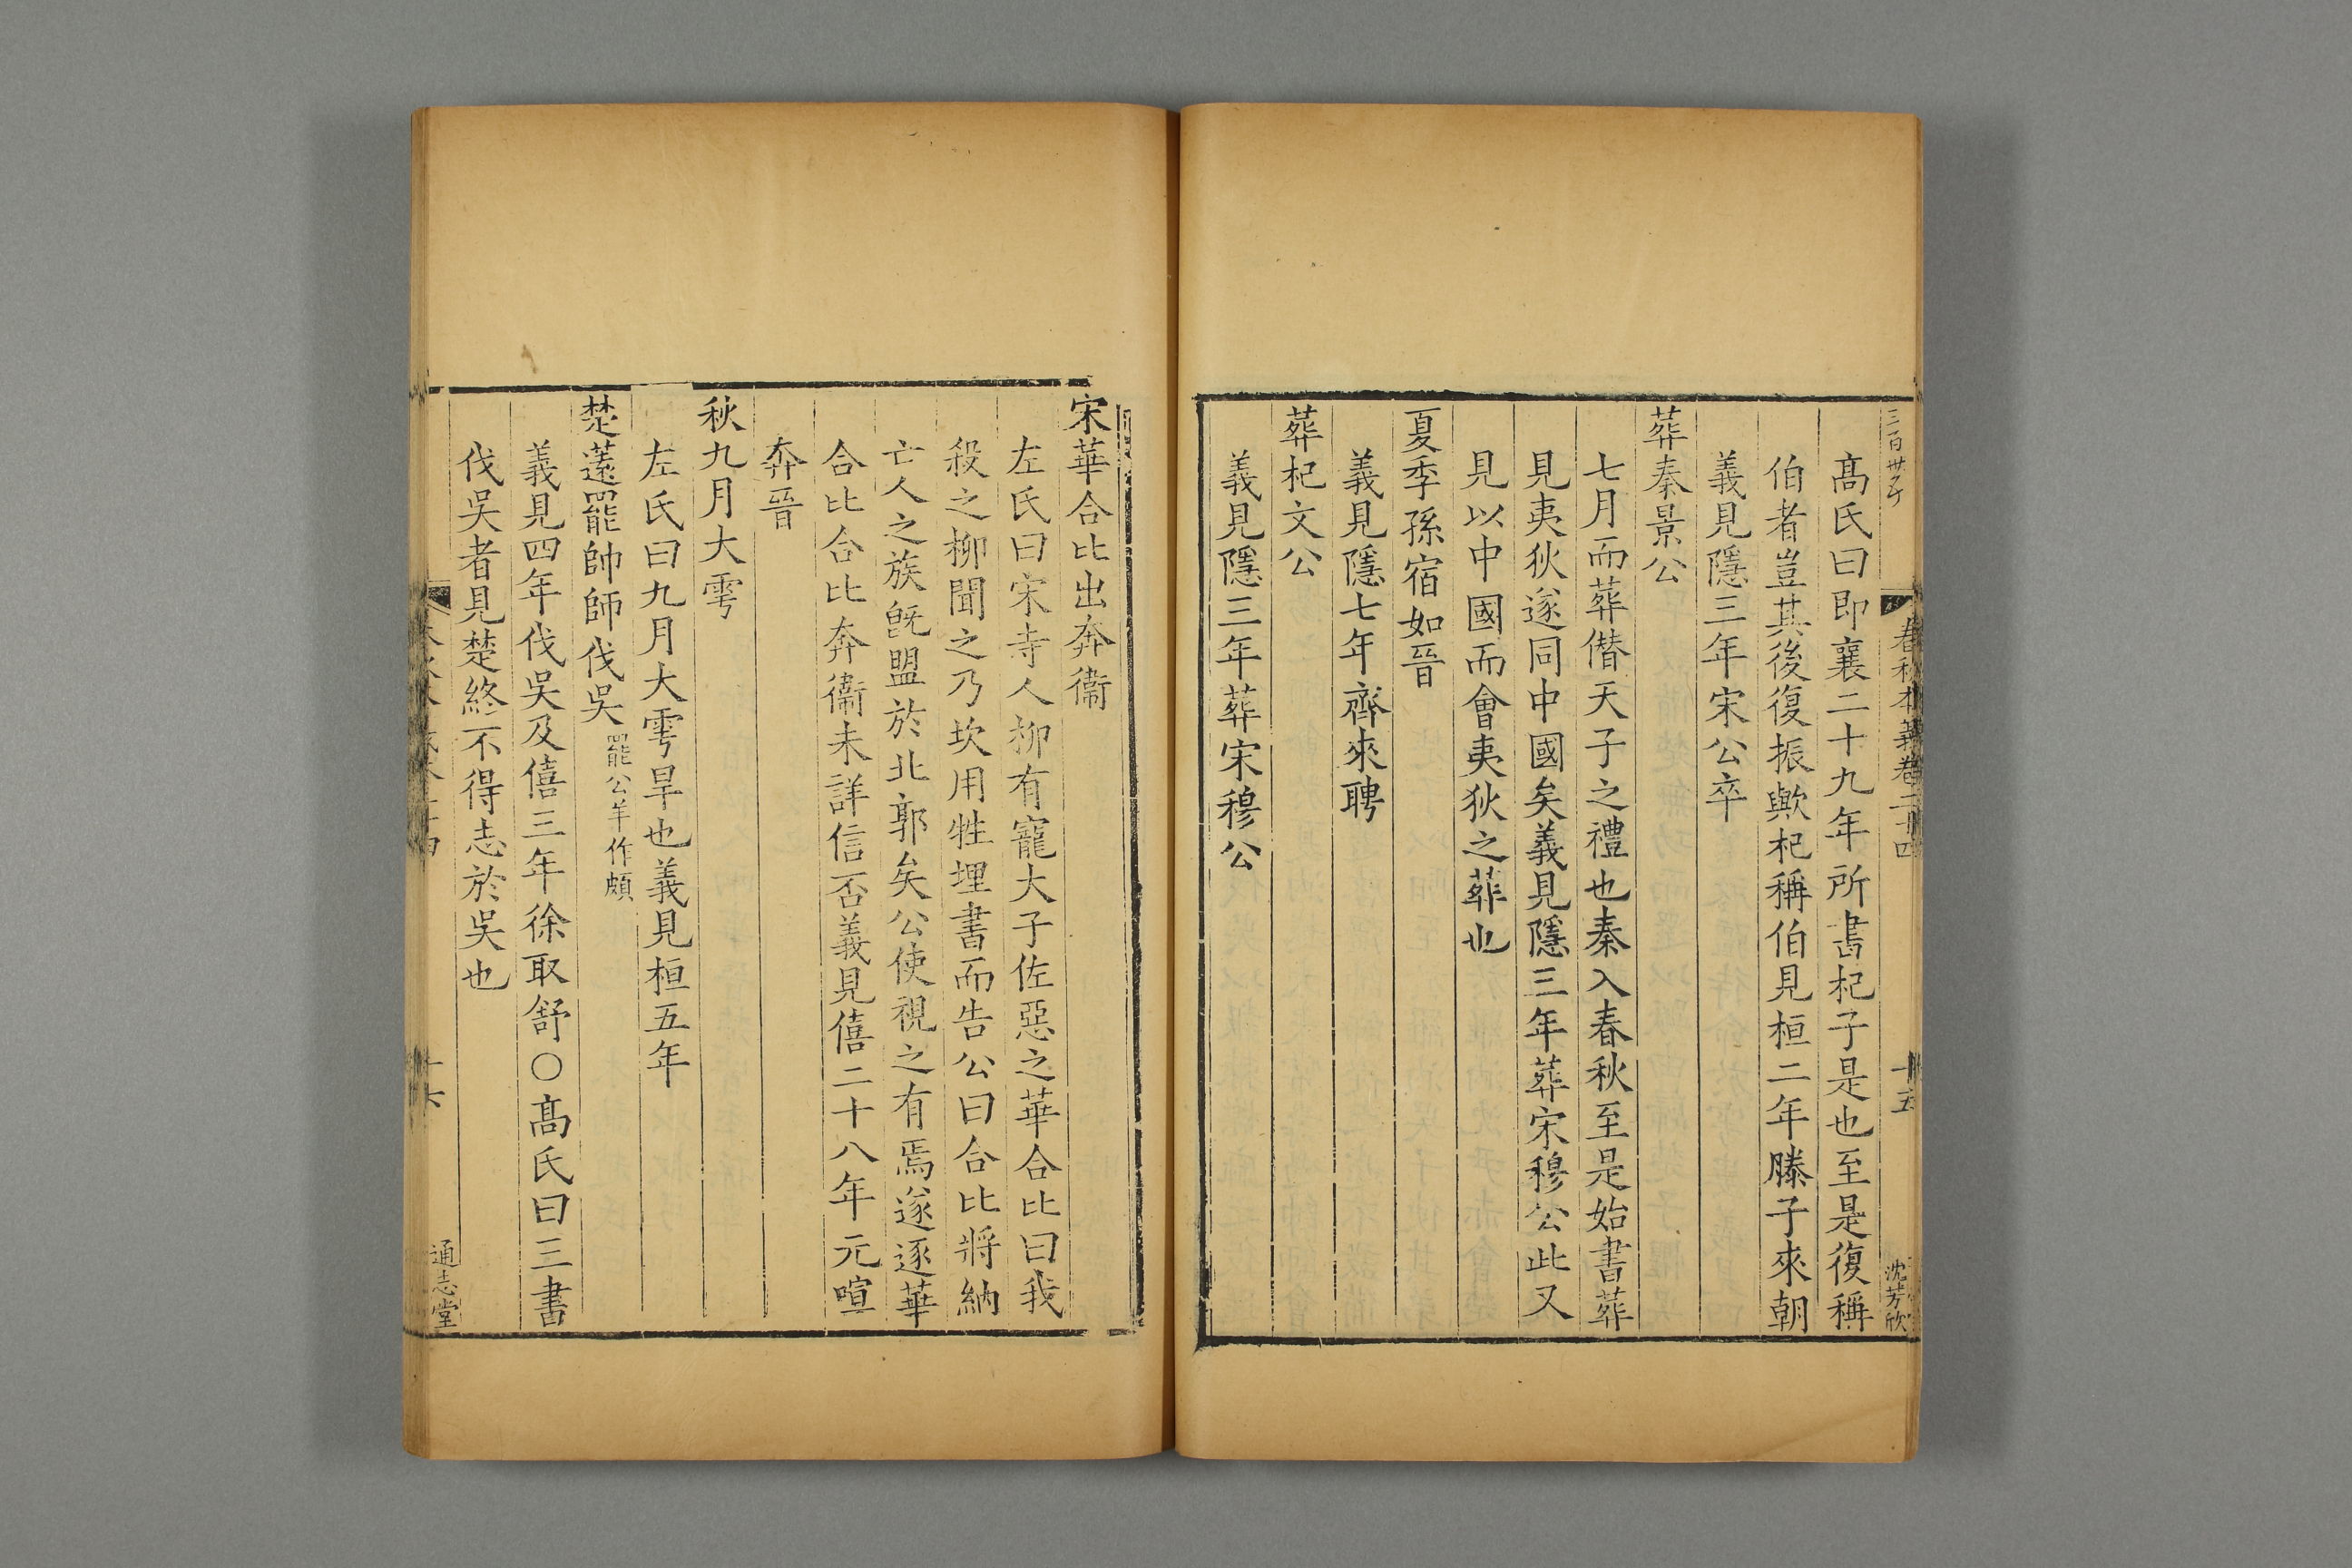 春秋本義卷二十四
十五
沈芳欣
高氏曰即襄二十九年所書杞子是也至是復稱
伯者豈其後復振歟杞稱伯見桓二年滕子來朝
義見隱三年宋公卒
葬秦景公
七月而葬僭天子之禮也秦入春秋至是始書葬
見夷狄遂同中國矣義見隱三年葬宋穆公此又
見以中國而會夷狄之葬也
夏季孫宿如晉
義見隱七年齊來聘
葬杞文公
義見隱三年葬宋穆公
宋華合比出奔衞
左氏曰宋寺人柳有寵大子佐惡之華合比曰我
殺之柳聞之乃坎用牲埋書而告公曰合比將納
亡人之族旣盟於北郭矣公使視之有焉遂逐華
合比合比奔衞未詳信否義見僖二十八年元咺
奔晉
秋九月大雩
左氏曰九月大雩旱也義見桓五年
楚薳罷帥師伐吳罷公羊作頗
義見四年伐吳及僖三年徐取舒○高氏曰三書
伐吳者見楚終不得志於吳也
通志堂